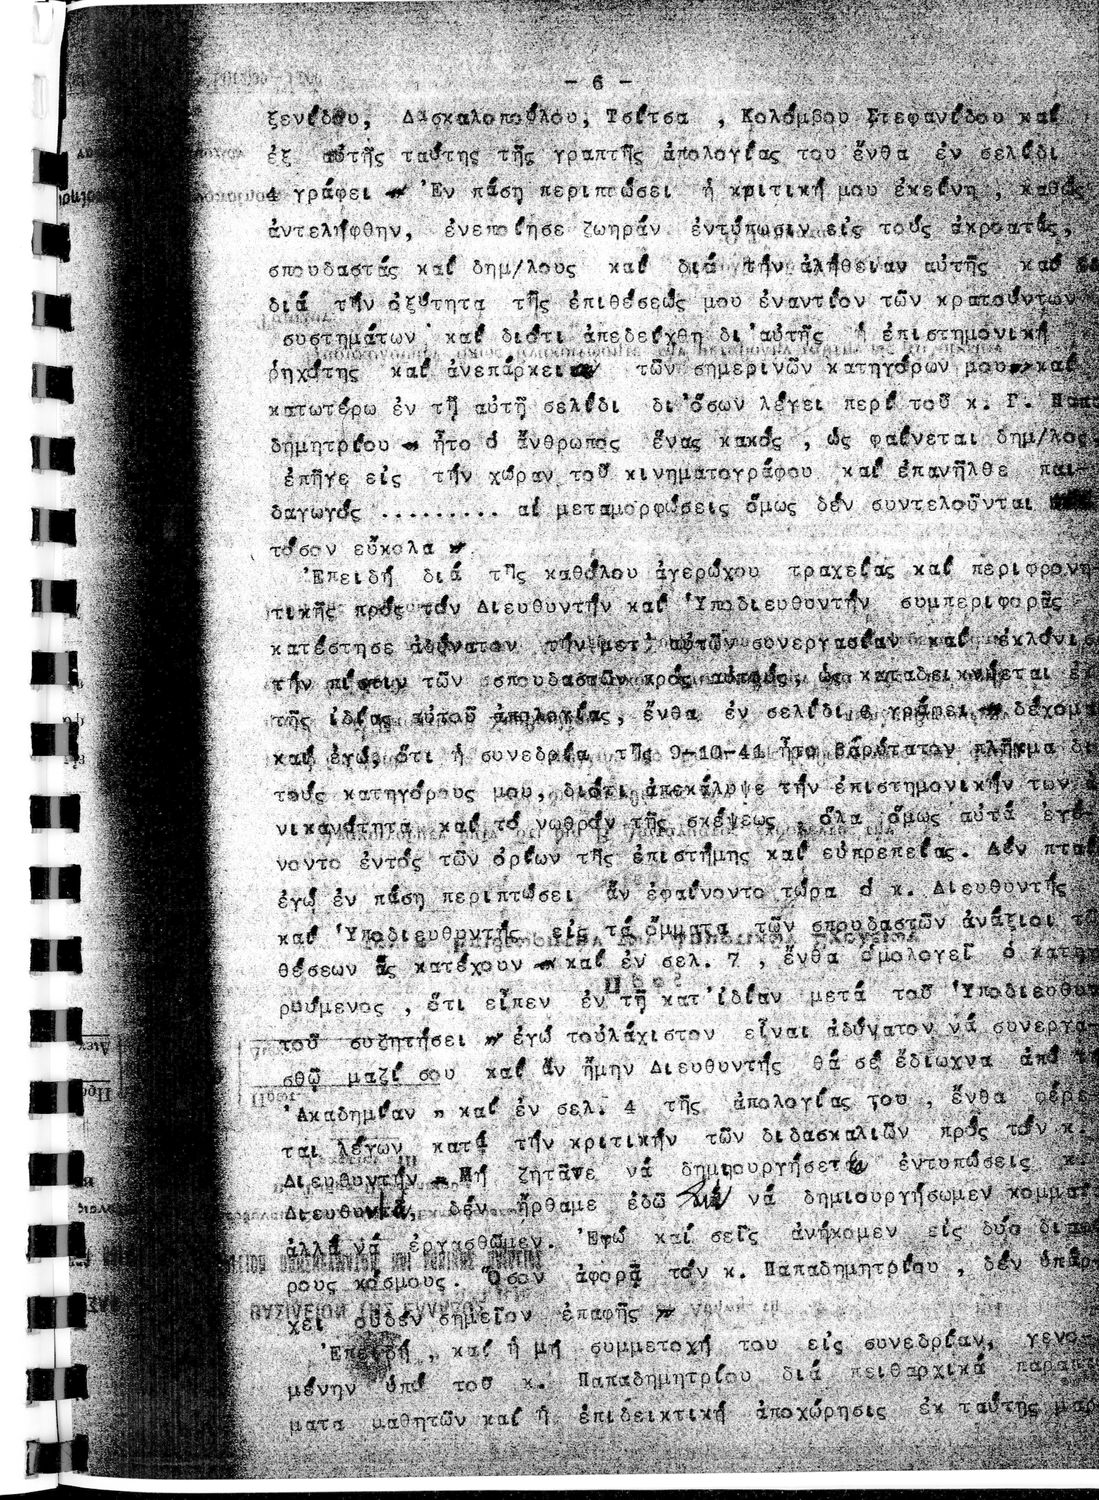 - 6 -
ξενίδου, Δασκαλοπούλου, Τσίτσα , Κολόμβου Στεφανίδου καί
ἐξ αὐτῆς ταύτης τῆς γραπτῆς ἀπολογίας του ἔνθα ἐν σελίδι
4 γράφει " Ἐν πάση περιπτώσει ἡ κριτική μου ἐκείνη , καθώς
ἀντελήφθην, ἐνεποίησε ζωηράν ἐντύπωσιν εἰς τούς ἀκροατάς,
σπουδαστάς καί δημ/λους καί διά τήν ἀλήθειαν αὐτῆς καί
διά τήν ὀξύτητα τῆς ἐπιθέσεώς μου ἐναντίον τῶν κρατούντων
συστημάτων καί διότι ἀπεδείχθη δι'αὐτῆς ἡ ἐπιστημονική
ρηχότης καί ἀνεπάρκεια τῶν σημερινῶν κατηγόρων μου" καί
κατωτέρω ἐν τῇ αὐτῇ σελίδι δι'ὅσων λέγει περί τοῦ κ. Γ. Παπα
δημητρίου " ἦτο ὁ ἄνθρωπος ἕνας κακός , ὡς φαίνεται δημ/λος,
ἐπῆγε εἰς τήν χώραν τοῦ κινηματογράφου καί ἐπανῆλθε παι-
δαγωγός ......... αἱ μεταμορφώσεις ὅμως δέν συντελοῦνται
τόσον εὔκολα "
Ἐπειδή διά τῆς καθόλου ἀγερώχου τραχείας καί περιφρονη-
τικῆς πρός τόν Διευθυντήν καί Ὑποδιευθυντήν συμπεριφορᾶς
κατέστησε ἀδύνατον τήν μετ' αὐτῶν συνεργασίαν καί ἐκλόνισε
τήν πίστιν τῶν σπουδαστῶν πρός αὐτούς, ὡς καταδεικνύεται ἐκ
τῆς ἰδίας αὐτοῦ ἀπολογίας, ἔνθα ἐν σελίδι 6 γράφει " δέχομαι
καί ἐγώ, ὅτι ἡ συνεδρία τῆς 9-10-41 ἦτο βαρύτατον πλῆγμα διά
τούς κατηγόρους μου, διότι ἀπεκάλυψε τήν ἐπιστημονικήν των ἀ
νικανότητα καί τό νωθρόν τῆς σκέψεως , ὅλα ὅμως αὐτά ἐγέ-
νοντο ἐντός τῶν ὁρίων τῆς ἐπιστήμης καί εὐπρεπείας. Δέν πταίω
ἐγώ ἐν πάση περιπτώσει ἄν ἐφαίνοντο τώρα ὁ κ. Διευθυντής
καί Ὑποδιευθυντής εἰς τά ὄμματα τῶν σπουδαστῶν ἀνάξιοι τῶν
θέσεων ἅς κατέχουν " καί ἐν σελ. 7 , ἔνθα ὁμολογεῖ ὁ κατηγο
ρούμενος , ὅτι εἶπεν ἐν τῇ κατ'ἰδίαν μετά τοῦ Ὑποδιευθυν
τοῦ συζητήσει " ἐγώ τοὐλάχιστον εἶναι ἀδύνατον νά συνεργα-
σθῶ μαζί σου καί ἄν ἤμην Διευθυντής θά σέ ἔδιωχνα ἀπό τήν
Ἀκαδημίαν " καί ἐν σελ. 4 τῆς ἀπολογίας του , ἔνθα φέρε-
ται λέγων κατά τήν κριτικήν τῶν διδασκαλιῶν πρός τόν κ.
Διευθυντήν " Μή ζητᾶτε νά δημιουργήσετε ἐντυπώσεις κ.
Διευθυντά, δέν ἤρθαμε ἐδῶ νά δημιουργήσωμεν κομματα
ἀλλά νά ἐργασθῶμεν. Ἐγώ καί σεῖς ἀνήκομεν εἰς δύο διαφό
ρους κόσμους. Ὅσον ἀφορᾷ τόν κ. Παπαδημητρίου , δέν ὑπάρ-
χει οὐδέν σημεῖον ἐπαφῆς "
Ἐπειδή , καί ἡ μή συμμετοχή του εἰς συνεδρίαν, γενο-
μένην ὑπό τοῦ κ. Παπαδημητρίου διά πειθαρχικά παραπτώ
ματα μαθητῶν καί ἡ ἐπιδεικτική ἀποχώρησις ἐκ ταύτης μαρ